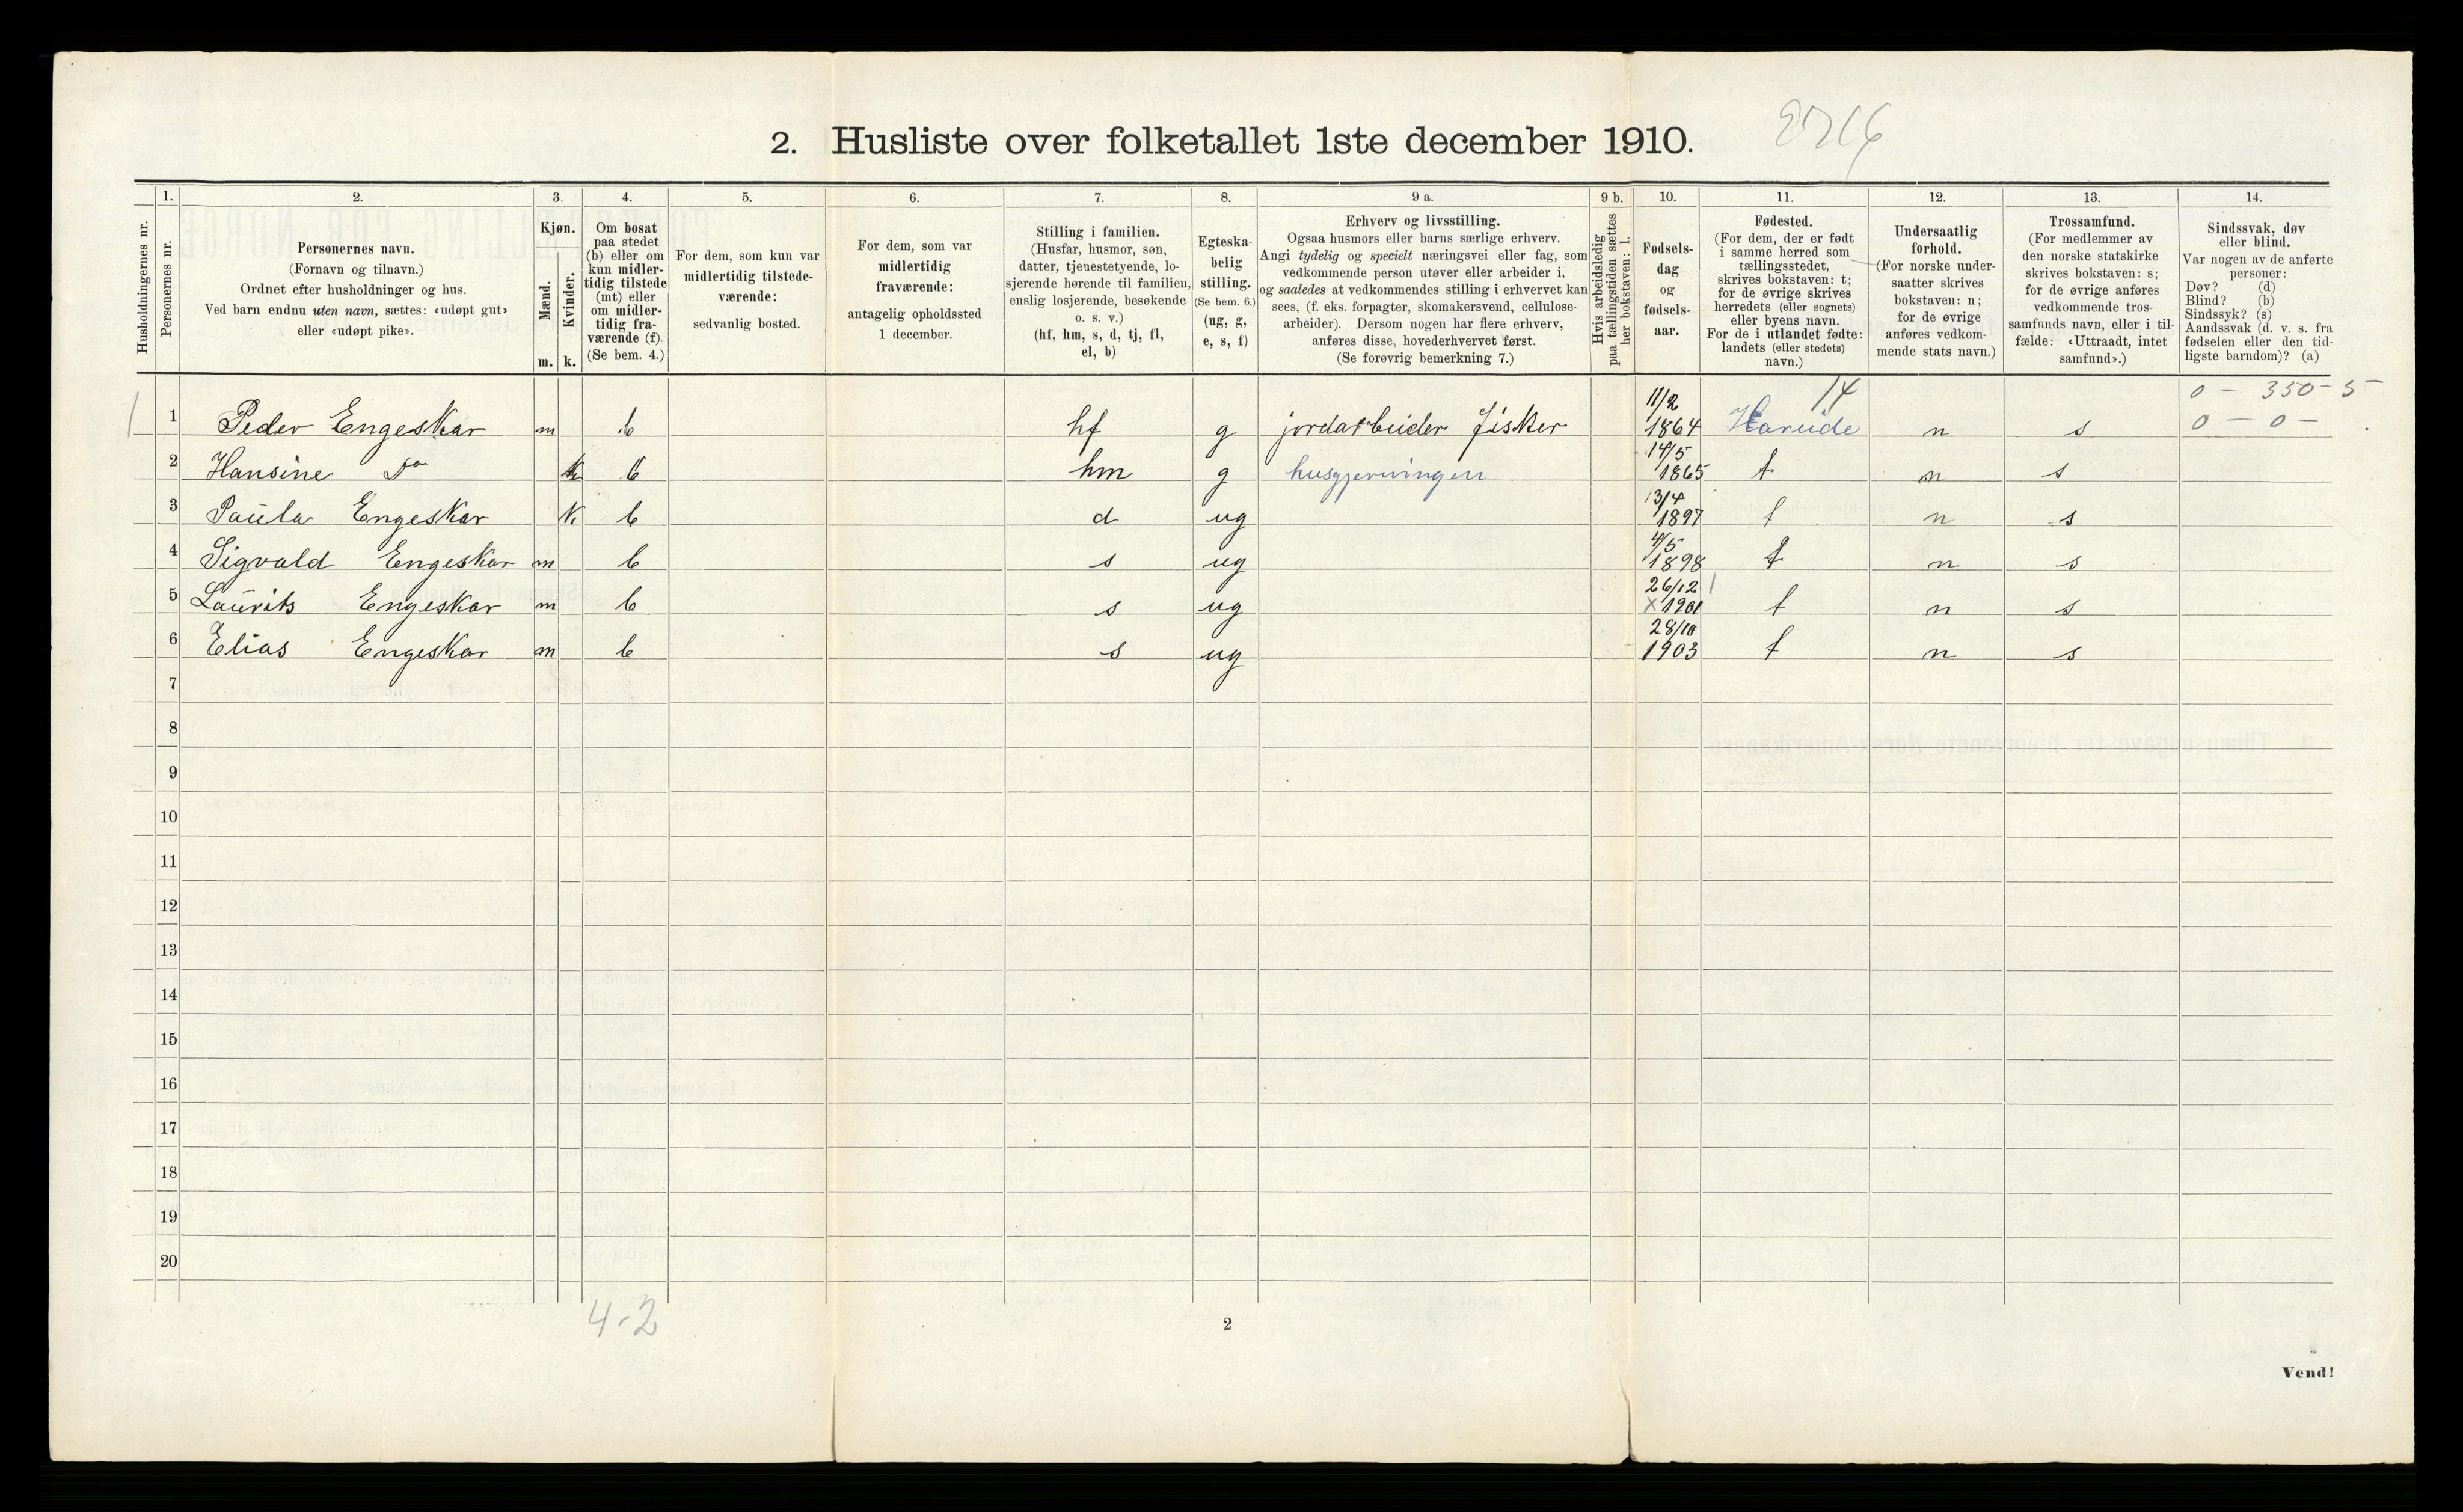 2. Husliste over folketallet 1ste december 1910.
Husholdningernes nr.
1. Personernes nr.
2.
Personernes navn.
(Fornavn og tilnavn.)
Ordnet efter husholdninger og hus.
Ved barn endnu uten navn, sættes: «udøpt gut»
eller «udøpt pike».
3.
Kjøn.
Mænd. Kvinder.
m. k.
4.
Om bosat
paa stedet
(b) eller om
kun midler-
tidig tilstede
(mt) eller
om midler-
tidig fra-
værende (f).
(Se bem. 4.)
5.
For dem, som kun var
midlertidig tilstede-
værende:
sedvanlig bosted.
6.
For dem, som var
midlertidig
fraværende:
antagelig opholdssted
1 december.
7.
Stilling i familien.
(Husfar, husmor, søn,
datter, tjenestetyende, lo-
sjerende hørende til familien,
enslig losjerende, besøkende
o. s. v.)
(hf, hm, s, d, tj, fl,
el, b)
8.
Egteska-
belig
stilling.
(Se bem. 6.)
(ug, g,
e, s, f)
9 a.
Erhverv og livsstilling.
Ogsaa husmors eller barns særlige erhverv.
Angi tydelig og specielt næringsvei eller fag, som
vedkommende person utøver eller arbeider i,
og saaledes at vedkommendes stilling i erhvervet kan
sees, (f. eks. forpagter, skomakersvend, cellulose-
arbeider). Dersom nogen har flere erhverv,
anføres disse, hovederhvervet først.
(Se forøvrig bemerkning 7.)
9 b.
Hvis arbeidsledig
paa tællingstiden sættes
her bokstaven: l.
10.
Fødsels-
dag
og
fødsels-
aar.
11.
Fødested.
(For dem, der er født
i samme herred som
tællingsstedet,
skrives bokstaven: t;
for de øvrige skrives
herredets (eller sognets)
eller byens navn.
For de i utlandet fødte:
landets (eller stedets)
navn.)
12.
Undersaatlig
forhold.
(For norske under-
saatter skrives
bokstaven: n;
for de øvrige
anføres vedkom-
mende stats navn.)
13.
Trossamfund.
(For medlemmer av
den norske statskirke
skrives bokstaven: s;
for de øvrige anføres
vedkommende tros-
samfunds navn, eller i til-
fælde: «Uttraadt, intet
samfund».)
14.
Sindssvak, døv
eller blind.
Var nogen av de anførte
personer:
Døv? (d)
Blind? (b)
Sindssyk? (s)
Aandssvak (d. v. s. fra
fødselen eller den tid-
ligste barndom)? (a)
11/2 14 0 - 350 - 5
1 1 Peder Engeskar m b hf g jordarbeider fisker 1864 n s 0 - 0 -
14/5
2 Hansine Do k b hm g husgjerningen 1865 t n s
13/4
3 Paula Engeskar k b d ug 1897 t n s
4/5
4 Sigvald Engeskar m b s ug 1898 t n s
26/12
5 Laurits Engeskar m b s ug x 1901 t n s
28/10
6 Elias Engeskar m b s ug 1903 t n s
7
8
9
10
11
12
13
14
15
16
17
18
19
20
4-2
2
Vend!